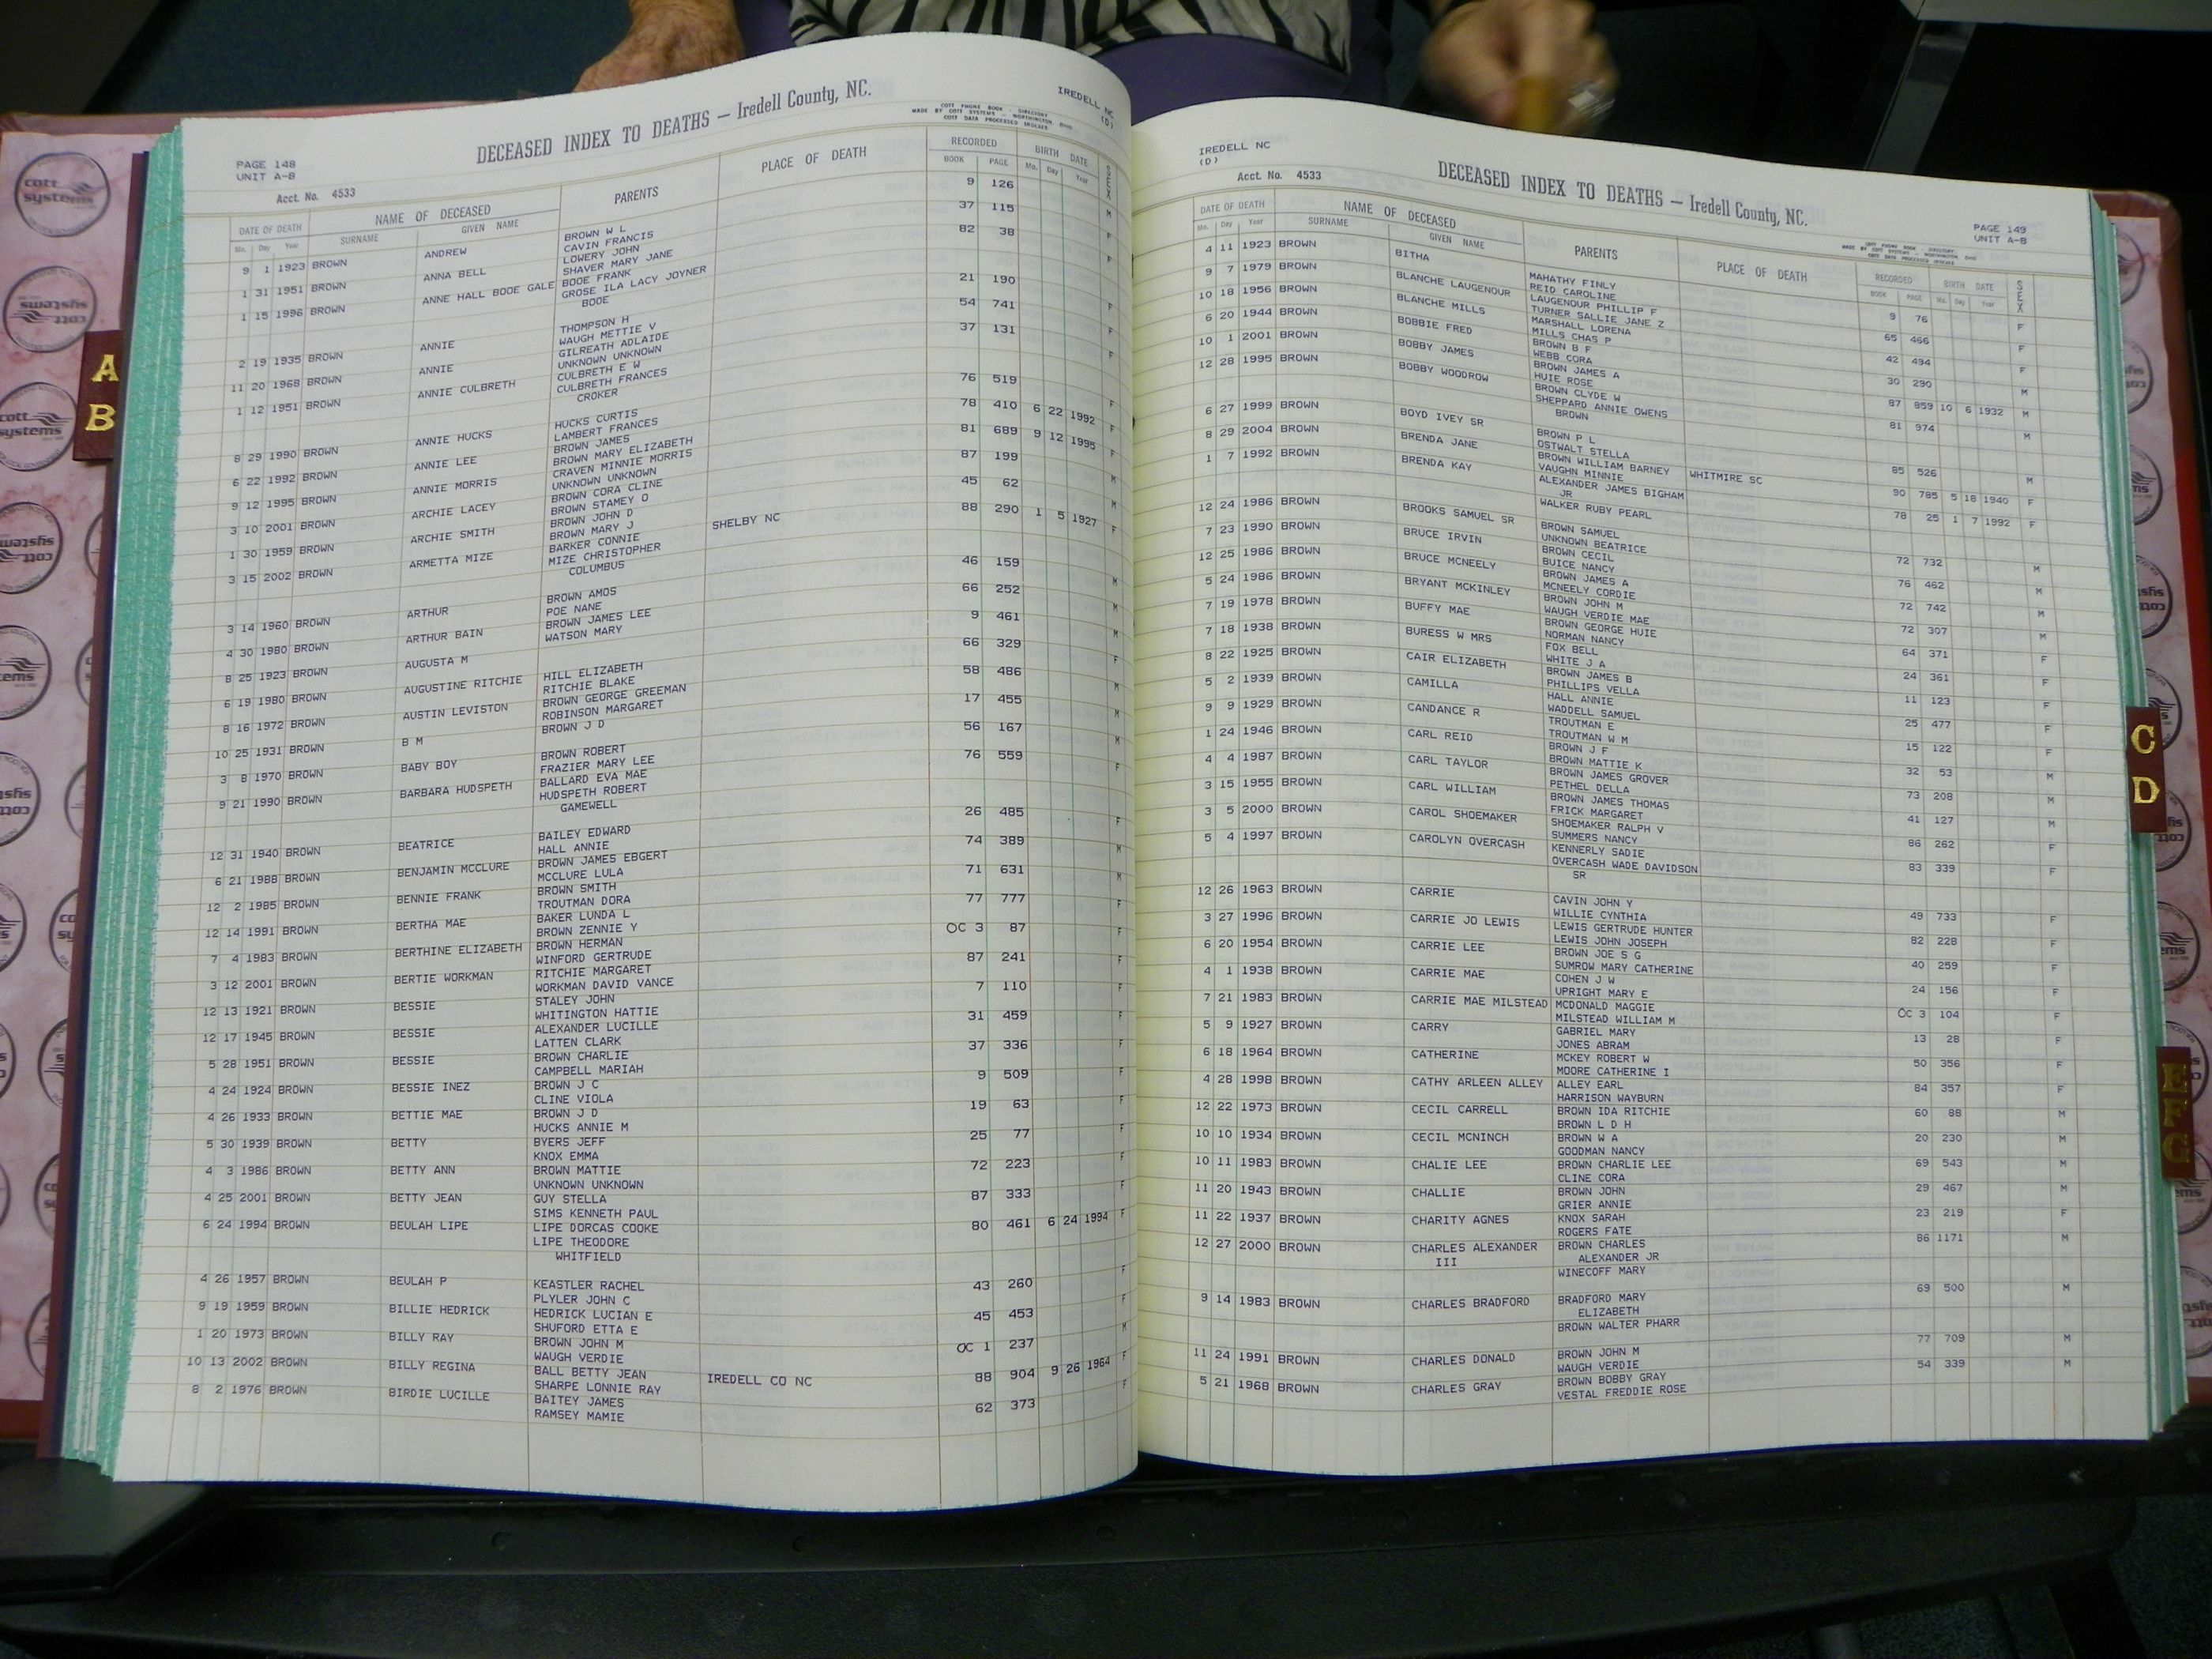 PAGE 148
UNIT A-B
DECEASED INDEX TO DEATHS — Iredell County, NC.
IREDELL NC
(D)
COTT PHONE BOOK - DIRECTORY
MADE BY COTT SYSTEMS - WORTHINGTON, OHIO
COTT DATA PROCESSED INDEXES
Acct. No. 4533
DATE OF DEATH NAME OF DECEASED PARENTS PLACE OF DEATH RECORDED BIRTH DATE SEX
Mo. Day Year SURNAME GIVEN NAME BOOK PAGE Mo. Day Year
9 1 1923 BROWN ANDREW BROWN W L 9 126 M
CAVIN FRANCIS
1 31 1951 BROWN ANNA BELL LOWERY JOHN 37 115 F
SHAVER MARY JANE
1 15 1996 BROWN ANNE HALL BOOE GALE BOOE FRANK 82 38 F
GROSE ILA LACY JOYNER
BOOE
2 19 1935 BROWN ANNIE THOMPSON H 21 190 F
WAUGH METTIE V
11 20 1968 BROWN ANNIE GILREATH ADLAIDE 54 741 F
UNKNOWN UNKNOWN
1 12 1951 BROWN ANNIE CULBRETH CULBRETH E W 37 131 F
CULBRETH FRANCES
CROKER
8 29 1990 BROWN ANNIE HUCKS HUCKS CURTIS 76 519 F
LAMBERT FRANCES
6 22 1992 BROWN ANNIE LEE BROWN JAMES 78 410 6 22 1992 F
BROWN MARY ELIZABETH
9 12 1995 BROWN ANNIE MORRIS CRAVEN MINNIE MORRIS 81 689 9 12 1995 F
UNKNOWN UNKNOWN
3 10 2001 BROWN ARCHIE LACEY BROWN CORA CLINE 87 199 M
BROWN STAMEY O
1 30 1959 BROWN ARCHIE SMITH BROWN JOHN D 45 62 M
BROWN MARY J
3 15 2002 BROWN ARMETTA MIZE BARKER CONNIE SHELBY NC 88 290 1 5 1927 F
MIZE CHRISTOPHER
COLUMBUS
3 14 1960 BROWN ARTHUR BROWN AMOS 46 159 M
POE NANE
4 30 1980 BROWN ARTHUR BAIN BROWN JAMES LEE 66 252 M
WATSON MARY
8 25 1923 BROWN AUGUSTA M 9 461 M
6 19 1980 BROWN AUGUSTINE RITCHIE HILL ELIZABETH 66 329 F
RITCHIE BLAKE
8 16 1972 BROWN AUSTIN LEVISTON BROWN GEORGE GREEMAN 58 486 M
ROBINSON MARGARET
10 25 1931 BROWN B M BROWN J D 17 455 M
3 8 1970 BROWN BABY BOY BROWN ROBERT 56 167 M
FRAZIER MARY LEE
9 21 1990 BROWN BARBARA HUDSPETH BALLARD EVA MAE 76 559 F
HUDSPETH ROBERT
GAMEWELL
12 31 1940 BROWN BEATRICE BAILEY EDWARD 26 485 F
HALL ANNIE
6 21 1988 BROWN BENJAMIN MCCLURE BROWN JAMES EBGERT 74 389 M
MCCLURE LULA
12 2 1985 BROWN BENNIE FRANK BROWN SMITH 71 631 M
TROUTMAN DORA
12 14 1991 BROWN BERTHA MAE BAKER LUNDA L 77 777 F
BROWN ZENNIE Y
7 4 1983 BROWN BERTHINE ELIZABETH BROWN HERMAN OC 3 87 F
WINFORD GERTRUDE
3 12 2001 BROWN BERTIE WORKMAN RITCHIE MARGARET 87 241 F
WORKMAN DAVID VANCE
12 13 1921 BROWN BESSIE STALEY JOHN 7 110 F
WHITINGTON HATTIE
12 17 1945 BROWN BESSIE ALEXANDER LUCILLE 31 459 F
LATTEN CLARK
5 28 1951 BROWN BESSIE BROWN CHARLIE 37 336 F
CAMPBELL MARIAH
4 24 1924 BROWN BESSIE INEZ BROWN J C 9 509 F
CLINE VIOLA
4 26 1933 BROWN BETTIE MAE BROWN J D 19 63 F
HUCKS ANNIE M
5 30 1939 BROWN BETTY BYERS JEFF 25 77 F
KNOX EMMA
4 3 1986 BROWN BETTY ANN BROWN MATTIE 72 223 F
UNKNOWN UNKNOWN
4 25 2001 BROWN BETTY JEAN GUY STELLA 87 333 F
SIMS KENNETH PAUL
6 24 1994 BROWN BEULAH LIPE LIPE DORCAS COOKE 80 461 6 24 1994 F
LIPE THEODORE
WHITFIELD
4 26 1957 BROWN BEULAH P KEASTLER RACHEL 43 260 F
PLYLER JOHN C
9 19 1959 BROWN BILLIE HEDRICK HEDRICK LUCIAN E 45 453 F
SHUFORD ETTA E
1 20 1973 BROWN BILLY RAY BROWN JOHN M OC 1 237 M
WAUGH VERDIE
10 13 2002 BROWN BILLY REGINA BALL BETTY JEAN IREDELL CO NC 88 904 9 26 1964 F
SHARPE LONNIE RAY
8 2 1976 BROWN BIRDIE LUCILLE BAITEY JAMES 62 373 F
RAMSEY MAMIE
IREDELL NC
(D)
Acct. No. 4533
DECEASED INDEX TO DEATHS — Iredell County, NC.
PAGE 149
UNIT A-B
COTT PHONE BOOK - DIRECTORY
MADE BY COTT SYSTEMS - WORTHINGTON, OHIO
COTT DATA PROCESSED INDEXES
DATE OF DEATH NAME OF DECEASED PARENTS PLACE OF DEATH RECORDED BIRTH DATE SEX
Mo. Day Year SURNAME GIVEN NAME BOOK PAGE Mo. Day Year
4 11 1923 BROWN BITHA MAHATHY FINLY 9 76 F
REID CAROLINE
9 7 1979 BROWN BLANCHE LAUGENOUR LAUGENOUR PHILLIP F 65 466 F
TURNER SALLIE JANE Z
10 18 1956 BROWN BLANCHE MILLS MARSHALL LORENA 42 494 F
MILLS CHAS P
6 20 1944 BROWN BOBBIE FRED BROWN B F 30 290 M
WEBB CORA
10 1 2001 BROWN BOBBY JAMES BROWN JAMES A 87 859 10 6 1932 M
HUIE ROSE
12 28 1995 BROWN BOBBY WOODROW BROWN CLYDE W 81 974 M
SHEPPARD ANNIE OWENS
BROWN
6 27 1999 BROWN BOYD IVEY SR BROWN P L 85 526 M
OSTWALT STELLA
8 29 2004 BROWN BRENDA JANE BROWN WILLIAM BARNEY WHITMIRE SC 90 785 5 18 1940 F
VAUGHN MINNIE
1 7 1992 BROWN BRENDA KAY ALEXANDER JAMES BIGHAM 78 25 1 7 1992 F
JR
WALKER RUBY PEARL
12 24 1986 BROWN BROOKS SAMUEL SR BROWN SAMUEL 72 732 M
UNKNOWN BEATRICE
7 23 1990 BROWN BRUCE IRVIN BROWN CECIL 76 462 M
BUICE NANCY
12 25 1986 BROWN BRUCE MCNEELY BROWN JAMES A 72 742 M
MCNEELY CORDIE
5 24 1986 BROWN BRYANT MCKINLEY BROWN JOHN M 72 307 M
WAUGH VERDIE MAE
7 19 1978 BROWN BUFFY MAE BROWN GEORGE HUIE 64 371 F
NORMAN NANCY
7 18 1938 BROWN BURESS W MRS FOX BELL 24 361 F
WHITE J A
8 22 1925 BROWN CAIR ELIZABETH BROWN JAMES B 11 123 F
PHILLIPS VELLA
5 2 1939 BROWN CAMILLA HALL ANNIE 25 477 F
WADDELL SAMUEL
9 9 1929 BROWN CANDANCE R TROUTMAN E 15 122 F
TROUTMAN W M
1 24 1946 BROWN CARL REID BROWN J F 32 53 M
BROWN MATTIE K
4 4 1987 BROWN CARL TAYLOR BROWN JAMES GROVER 73 208 M
PETHEL DELLA
3 15 1955 BROWN CARL WILLIAM BROWN JAMES THOMAS 41 127 M
FRICK MARGARET
3 5 2000 BROWN CAROL SHOEMAKER SHOEMAKER RALPH V 86 262 F
SUMMERS NANCY
5 4 1997 BROWN CAROLYN OVERCASH KENNERLY SADIE 83 339 F
OVERCASH WADE DAVIDSON
SR
12 26 1963 BROWN CARRIE CAVIN JOHN Y 49 733 F
WILLIE CYNTHIA
3 27 1996 BROWN CARRIE JO LEWIS LEWIS GERTRUDE HUNTER 82 228 F
LEWIS JOHN JOSEPH
6 20 1954 BROWN CARRIE LEE BROWN JOE S G 40 259 F
SUMROW MARY CATHERINE
4 1 1938 BROWN CARRIE MAE COHEN J W 24 156 F
UPRIGHT MARY E
7 21 1983 BROWN CARRIE MAE MILSTEAD MCDONALD MAGGIE OC 3 104 F
MILSTEAD WILLIAM M
5 9 1927 BROWN CARRY GABRIEL MARY 13 28 F
JONES ABRAM
6 18 1964 BROWN CATHERINE MCKEY ROBERT W 50 356 F
MOORE CATHERINE I
4 28 1998 BROWN CATHY ARLEEN ALLEY ALLEY EARL 84 357 F
HARRISON WAYBURN
12 22 1973 BROWN CECIL CARRELL BROWN IDA RITCHIE 60 88 M
BROWN L D H
10 10 1934 BROWN CECIL MCNINCH BROWN W A 20 230 M
GOODMAN NANCY
10 11 1983 BROWN CHALIE LEE BROWN CHARLIE LEE 69 543 M
CLINE CORA
11 20 1943 BROWN CHALLIE BROWN JOHN 29 467 M
GRIER ANNIE
11 22 1937 BROWN CHARITY AGNES KNOX SARAH 23 219 F
ROGERS FATE
12 27 2000 BROWN CHARLES ALEXANDER BROWN CHARLES 86 1171 M
III ALEXANDER JR
WINECOFF MARY
9 14 1983 BROWN CHARLES BRADFORD BRADFORD MARY 69 500 M
ELIZABETH
BROWN WALTER PHARR
11 24 1991 BROWN CHARLES DONALD BROWN JOHN M 77 709 M
WAUGH VERDIE
5 21 1968 BROWN CHARLES GRAY BROWN BOBBY GRAY 54 339 M
VESTAL FREDDIE ROSE
A
B
C
D
E
F
G
cott
systems